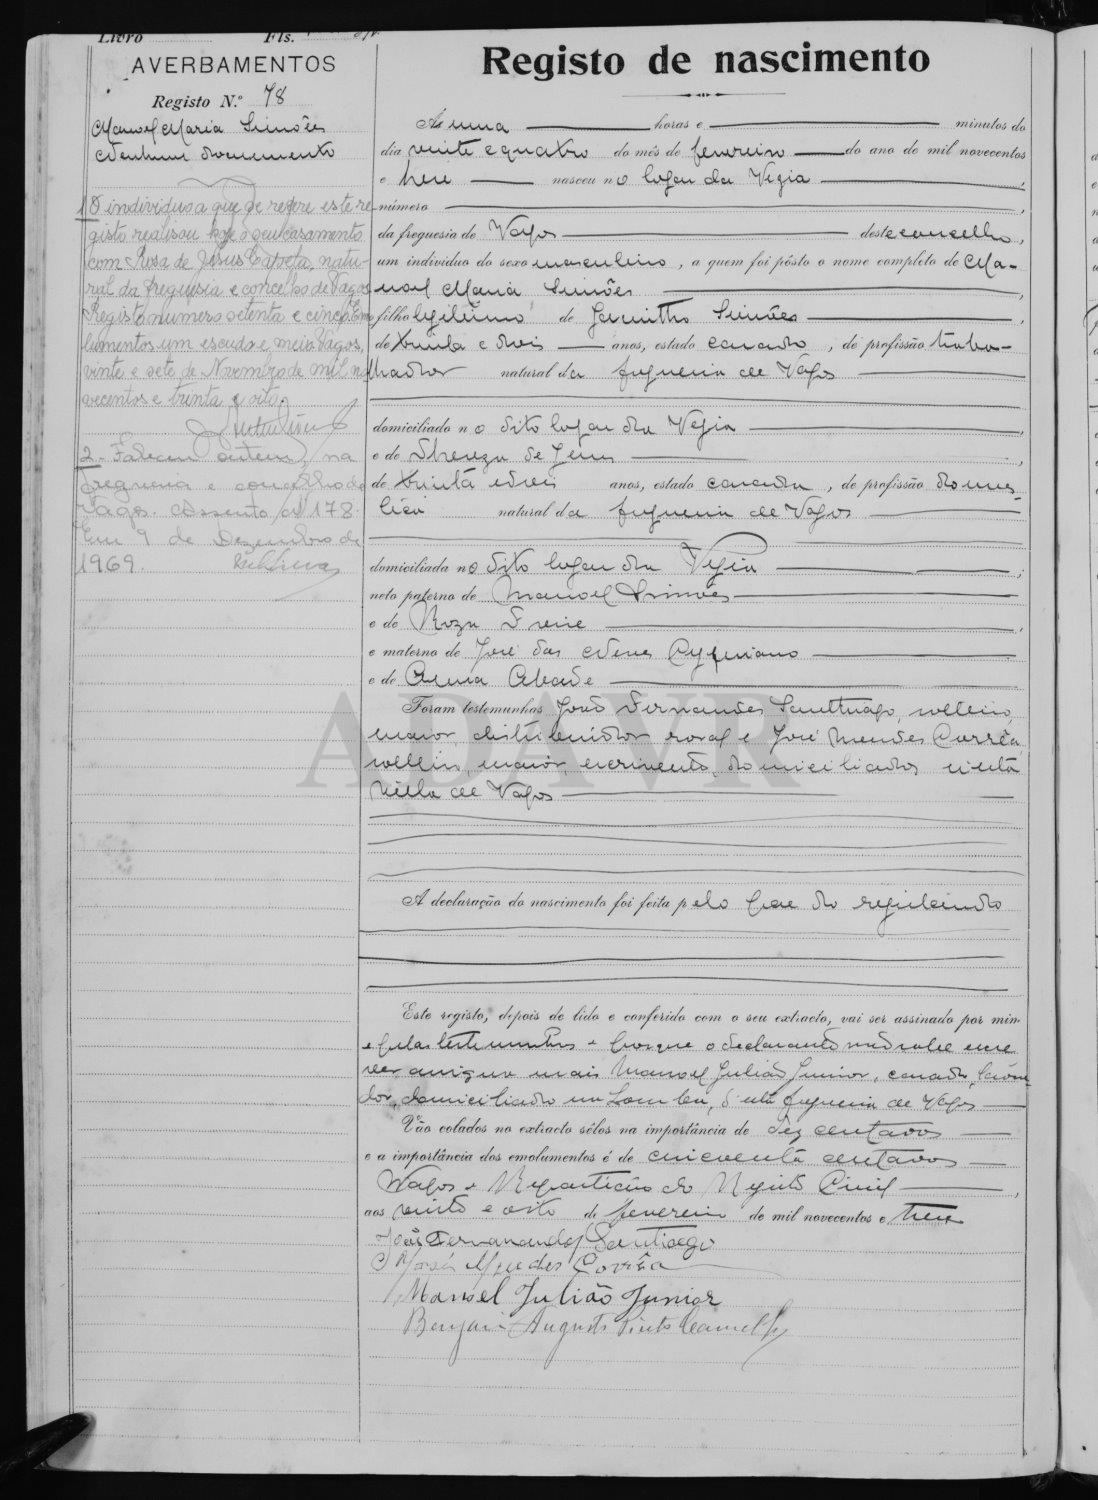 Livro Fls.
AVERBAMENTOS
Registo N.º 78
Manoel Maria Simões
Nenhum documento
1 O individuo a que se refere este re-
gisto realisou hoje o seu casamento
com Rosa de Jesus Capeta, natu-
ral da freguesia e concelho de Vagos
Registo numero setenta e cinco. Emo-
lumentos um escudo e meio. Vagos,
vinte e sete de Novembro de mil no-
vecentos e trinta e oito.
2 - Faleceu ontem, na
freguesia e concelho de
Vagos. Assento nº 178.
Em 9 de Dezembro de
1969.
Registo de nascimento
Ás uma horas e minutos do
dia vinte e quatro do mês de fevereiro do ano de mil novecentos
e treze nasceu no logar da Vigia ,
número ,
da freguesia de Vagos deste concelho,
um individuo do sexo masculino, a quem foi pôsto o nome completo de Ma-
noel Maria Simões ,
filho legitimo de Jacintho Simões
de trinta e dois anos, estado casado, de profissão traba-
lhador natural da freguesia de Vagos
domiciliado no dito logar da Vigia ,
e de Thereza de Jesus ,
de trinta e dois anos, estado casada, de profissão domes-
tica natural da freguesia de Vagos
domiciliada no dito logar da Vigia ;
neto paterno de Manoel Simões
e de Roza Freire ,
e materno de José das Neves Cypriano
e de Anna Abade
Foram testemunhas João Fernandes Santhiago, solteiro,
maior, distribuidor rural e José Mendes Corrêa,
solteiro, maior, escrevente, domiciliados n'esta
villa de Vagos
A declaração do nascimento foi feita pelo pae do registando
Este registo, depois de lido e conferido com o seu extracto, vai ser assinado por mim
e pelas testemunhas e porque o declarante não sabe escre
ver assigna mais Manoel Julião Junior, casado,
domiciliado na Lomba, d'esta freguesia de Vagos
Vão colados no extracto sêlos na importância de dez centavos
e a importância dos emolumentos é de cincoenta centavos
Vagos e Repartição do Registo Civil ,
aos vinte e oito de fevereiro de mil novecentos e treze
João Fernandes Santiago
José Mendes Corrêa
Manoel Julião Junior
Benjamin Augusto Pinto Camello
ADAVR